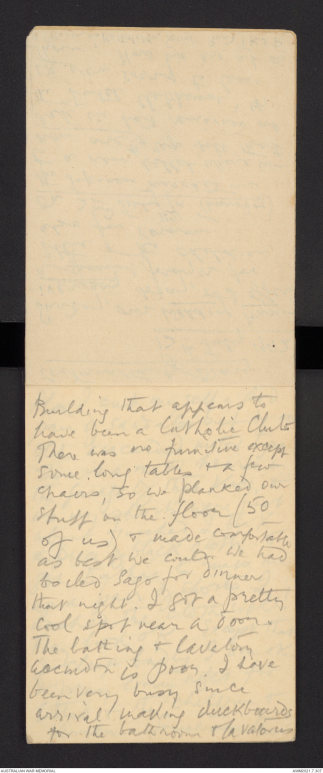 Building that appears to
have been a Catholic Club
There was no furniture except
some long tables & a few
chairs, so we planked our
stuff on the floor (50
of us) & made comfortable
as best we could. We had
boiled Sago for dinner
that night. I got a pretty
cool spot near a door.
The bathing & lavatory
accmdtn is poor. I have
been very busy since
arrival making duckboards
for the bathroom & lavatories
AUSTRALIAN WAR MEMORIAL